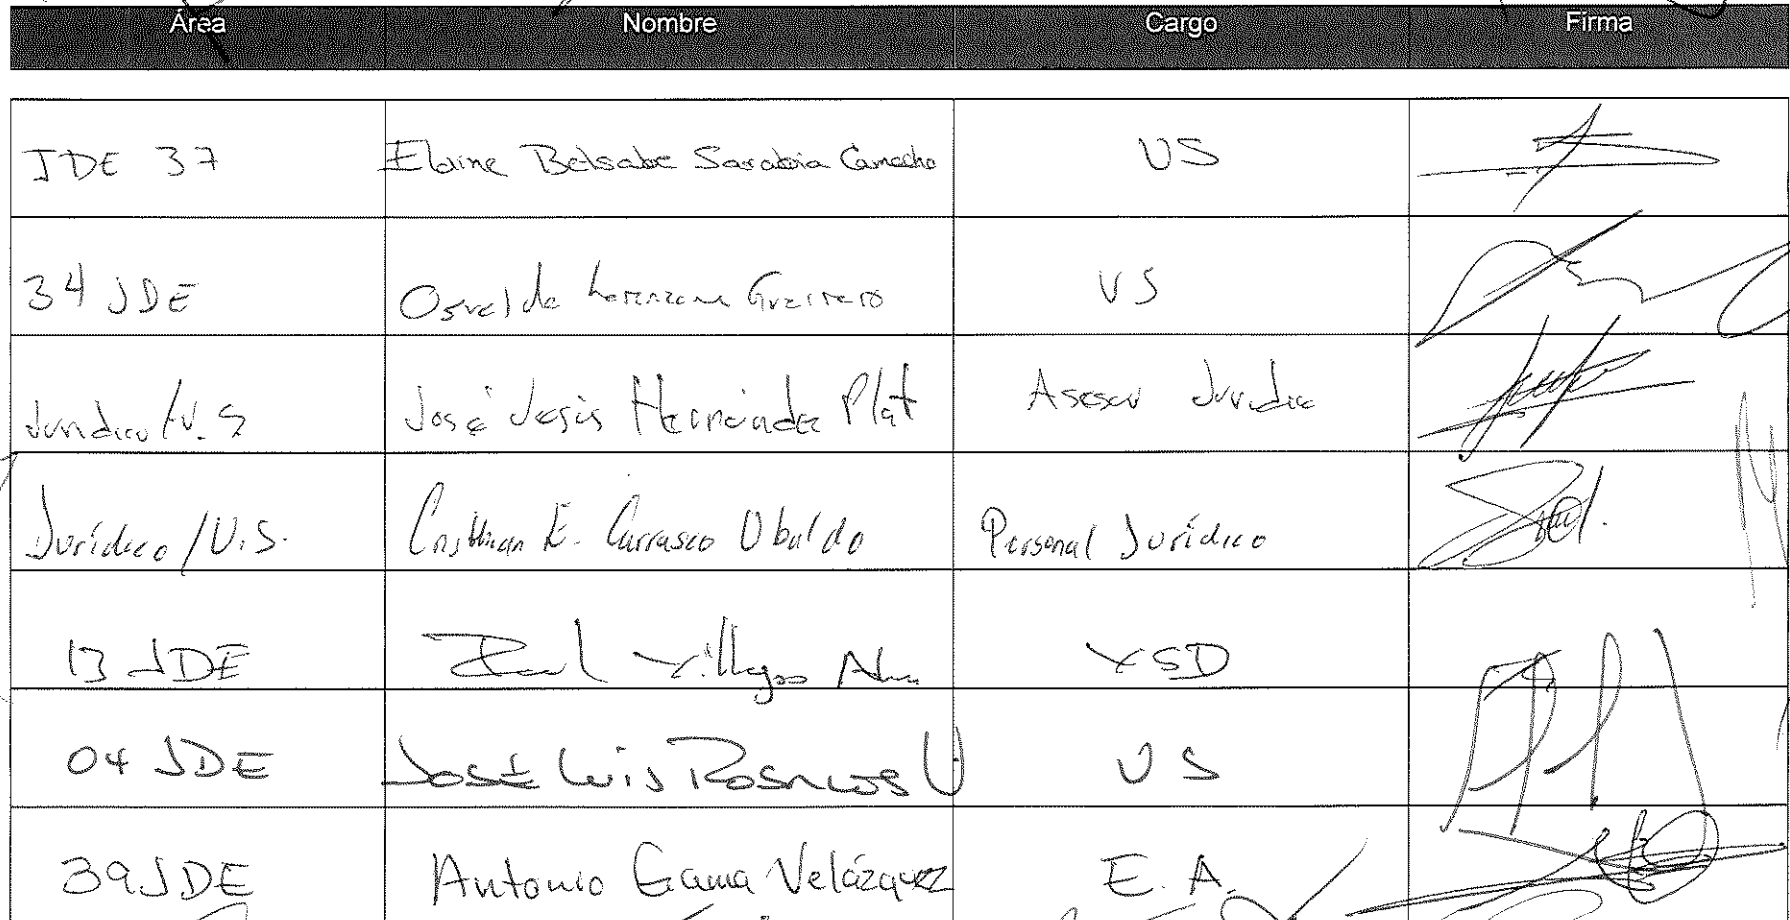 Área Nombre Cargo Firma
JDE 37 Elaine Betsabe Sarabia Camacho VS
34 JDE Osvaldo Lorenzana Guerrero VS
Jurídico/V.S José Jesús Hernández Plat Asesor Jurídico
Jurídico/V.S. Cristhian E. Carrasco Ubaldo Personal Jurídico
13 JDE Villegas VSD
04 JDE José Luis Rosales V VS
39 JDE Antonio Gama Velázquez E. A.